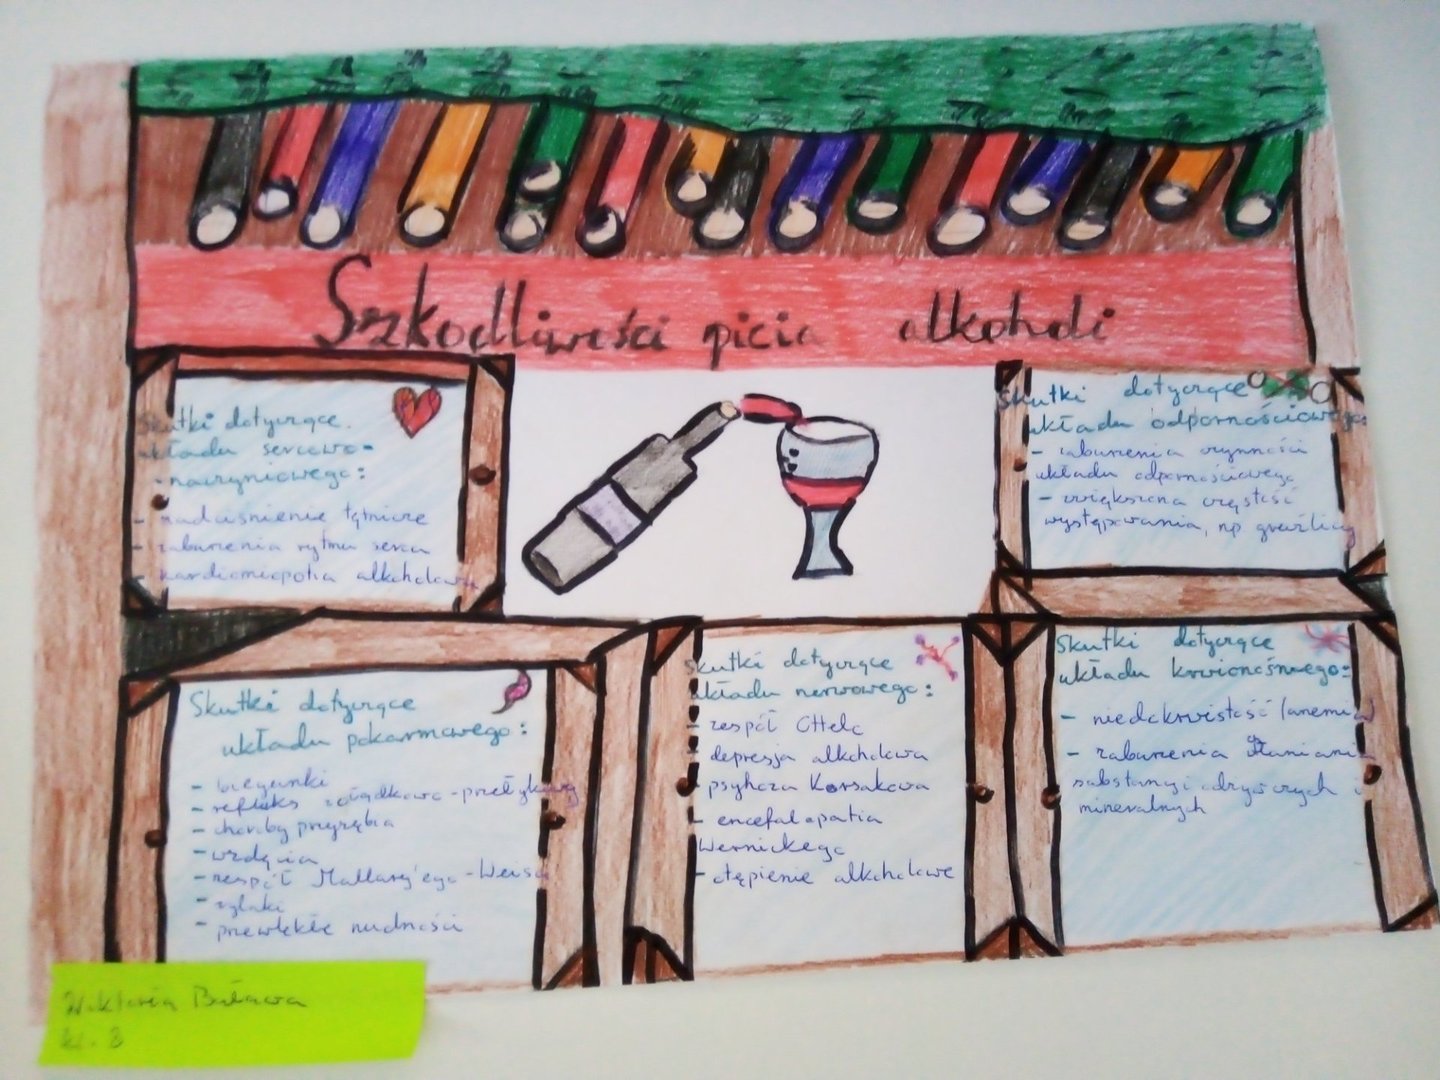 Szkodliwości picia alkoholi
Skutki dotyczące
układu sercowo-
-naczyniowego:
- nadciśnienie tętnicze
- zaburzenia rytmu serca
- kardiomiopatia alkoholowa
Skutki dotyczące
układu odpornościowego:
- zaburzenia czynności
układu odpornościowego
- zwiększona częstość
występowania, np gruźlicy
Skutki dotyczące
układu pokarmowego:
- biegunki
- refluks żołądkowo-przełykowy
- choroby przyzębia
- wzdęcia
- zespół Mallory'ego-Weissa
- żylaki
- przewlekłe nudności
Skutki dotyczące
układu nerwowego:
- zespół Otella
- depresja alkoholowa
- psyhoza Korsakowa
- encefalopatia
Wernickego
- otępienie alkoholowe
Skutki dotyczące
układu krwionośnego:
- niedokrwistość (anemia)
- zaburzenia
substancji odżywczych i
mineralnych
Wiktoria Buława
kl. 8